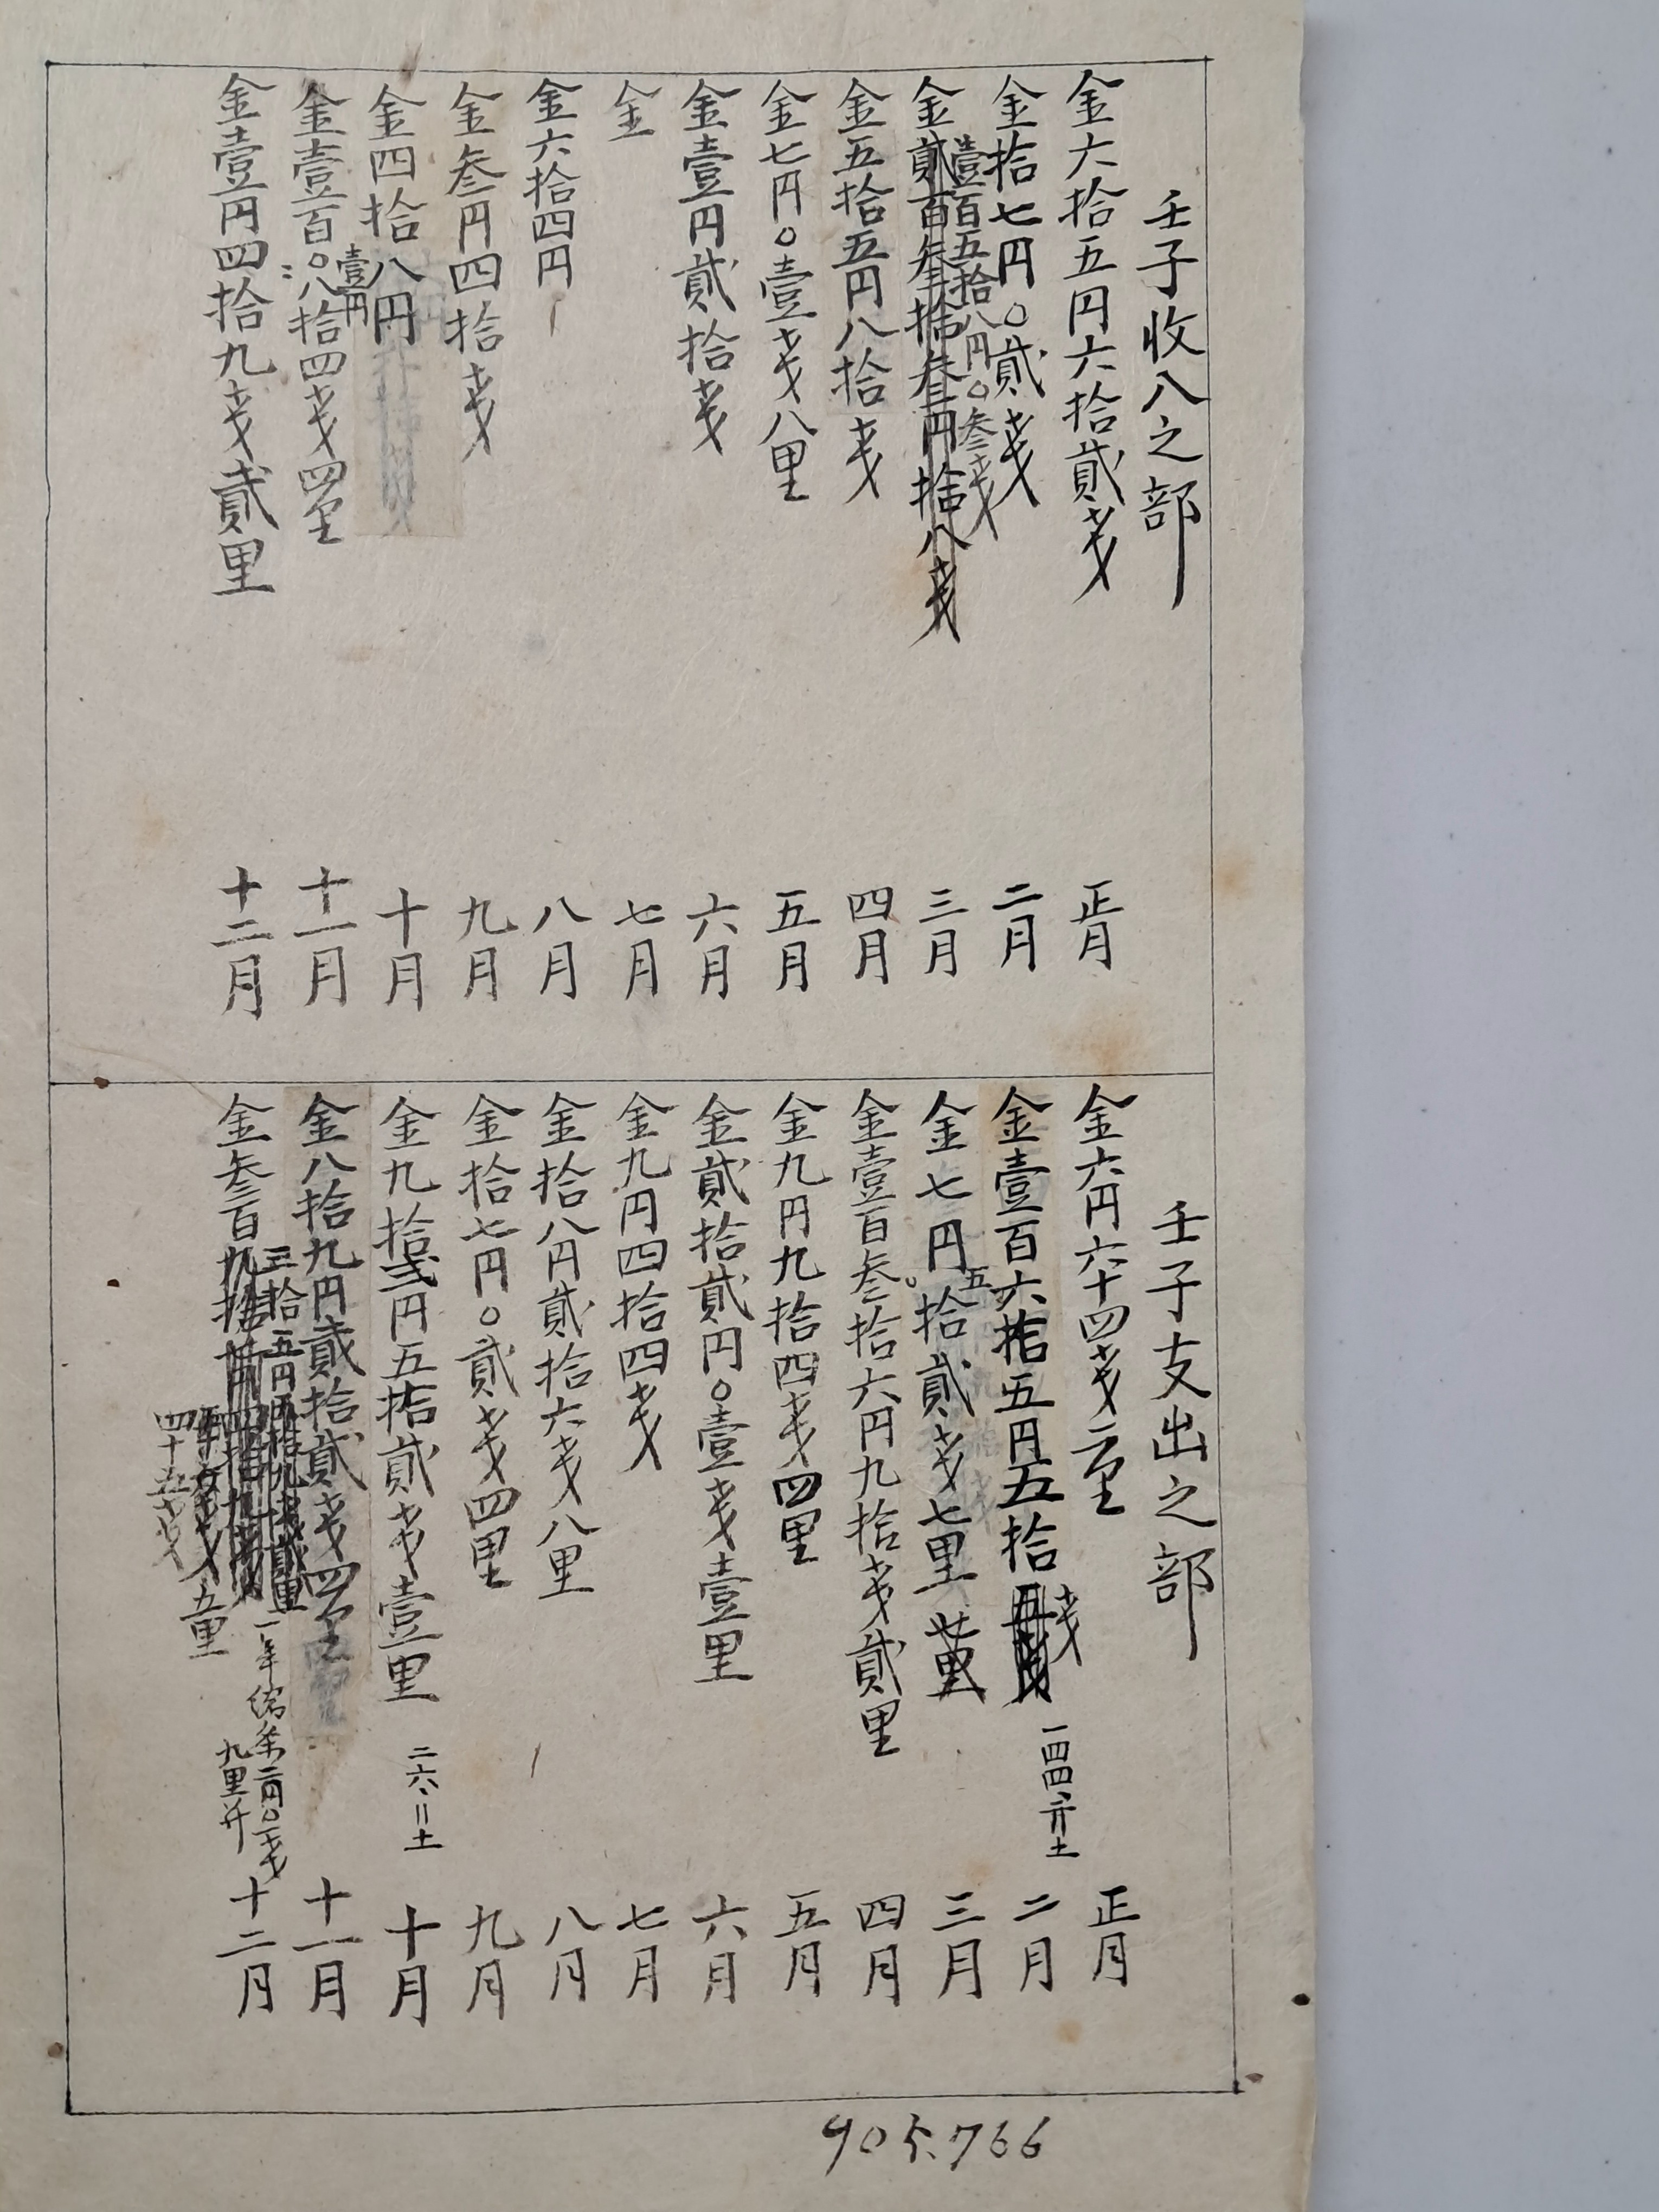 壬子收入之部
金六拾五円六拾貳戋 正月
金拾七円〇貳戋 二月
壹百五拾八円〇叁戋
金貳百叁拾叁円拾八戋 三月
金五拾五円八拾戋 四月
金七円〇壹戋八里 五月
金壹円貳拾戋 六月
金 七月
金六拾四円 八月
金叁円四拾戋 九月
金四拾八円 十月
壹円
金壹百〇八拾四戋四里 十一月
金壹円四拾九戋貳里 十二月
壬子支出之部
金六円六十四戋二里 正月
金壹百六拾五円五拾戋 一四四 二月
金七円五拾貳戋七里 三月
金壹百叁拾六円九拾戋貳里 四月
金九円九拾四戋四里 五月
金貳拾貳円〇壹戋壹里 六月
金九円四拾四戋 七月
金拾八円貳拾六戋八里 八月
金拾七円〇貳戋四里 九月
金九拾弍円五拾貳戋壹里 二六、〢土 十月
金八拾九円貳拾貳戋四里 十一月
三拾五円
金叁百 十二月
五里
四十五戋
九里并
905.766